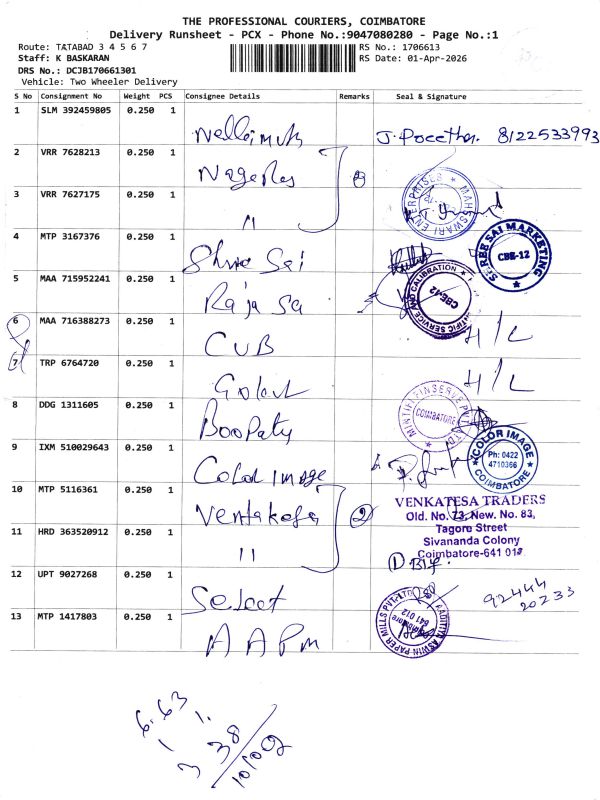 THE PROFESSIONAL COURIERS, COIMBATORE
Delivery Runsheet - PCX - Phone No.:9047080280 - Page No.:1
Route: TATABAD 3 4 5 6 7
RS No.: 1706613
Staff: K BASKARAN
RS Date: 01-Apr-2026
DRS No.: DCJB170661301
Vehicle: Two Wheeler Delivery
S No Consignment No Weight PCS Consignee Details Remarks Seal & Signature
1 SLM 392459805 0.250 1
8122533993
2 VRR 7628213 0.250 1
3 VRR 7627175 0.250 1 "
MAHESWARI ENTERPRISES
4 MTP 3167376 0.250 1 Shree Sai
SHREE SAI MARKETING
CBE-12
5 MAA 715952241 0.250 1 Raja Sa
AND CALIBRATION
CBE-12
6 MAA 716388273 0.250 1 CUB H/L
7 TRP 6764720 0.250 1 H/L
8 DDG 1311605 0.250 1 Boopaty
COIMBATORE
9 IXM 510029643 0.250 1 Color image
COLOR IMAGE
Ph: 0422
4710366
COIMBATORE
10 MTP 5116361 0.250 1 2
VENKATESA TRADERS
Old. No. 73, New. No. 83,
Tagore Street
Sivananda Colony
Coimbatore-641 012
11 HRD 363520912 0.250 1 "
12 UPT 9027268 0.250 1 Select
92444
20233
13 MTP 1417803 0.250 1 AAPM
AADITYA ASWIN PAPER MILLS PVT. LTD
641 012
6.63
38